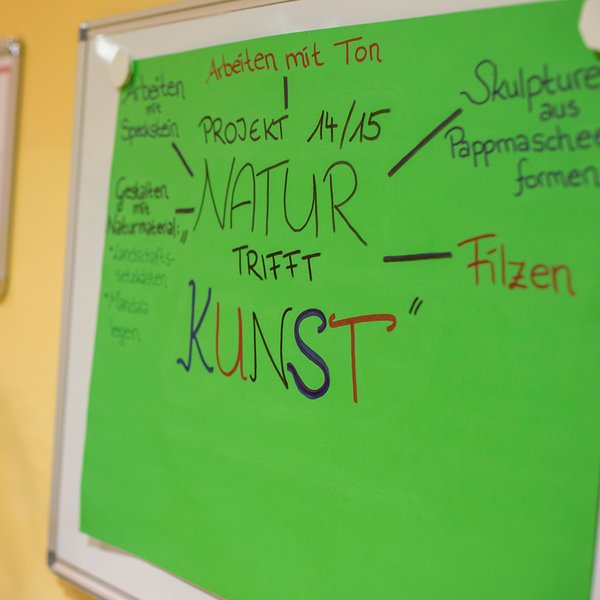 Arbeiten mit Ton
Arbeiten
mit
Speckstein
PROJEKT 14/15
Skulpture
aus
Pappmaschee
formen
Gestalten
mit
Naturmaterial:
"NATUR
TRIFFT
KUNST"
Filzen
*Landschafts-
*Mandala
legen